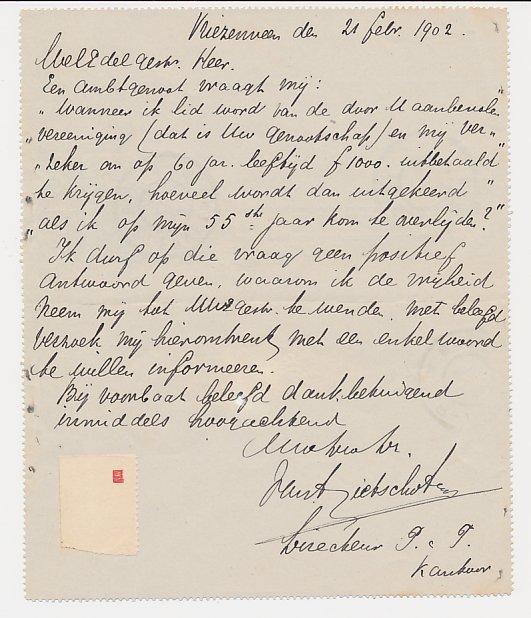 Vriezenveen den 21 febr. 1902.
WelEdelgestr. Heer.
Een ambtgenoot vraagt mij:
„Wanneer ik lid word van de door U aanbevolen"
„vereeniging (dat is Uw genootschap) en mij ver-"
„zeker om op 60 jar. leeftijd f 1000. uitbetaald
te krijgen, hoeveel wordt dan uitgekeerd"
„als ik op mijn 55ste jaar kom te overlijden?"
Ik durf op die vraag geen positief
antwoord geven, waarom ik de vrijheid
neem mij tot UwEgestr. te wenden, met beleefd
verzoek mij hieromtrent met een enkel woord
te willen informeeren.
Bij voorbaat beleefd dankbetuigend
inmiddels hoogachtend
Uw dw. dr.
Directeur P. & T.
Kantoor